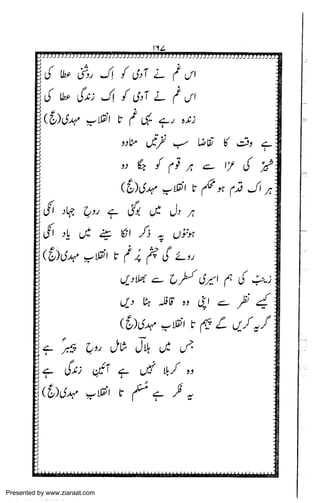 ۱۶۷
اس غم نے آدمی کو اک روشنی عطا کی
اس غم نے آدمی کو اک زندگی عطا کی
زندہ رہے یہی غم تا انقلاب مہدی (عج)
ہے وقت کا تقاضا سب نفرتیں مٹا دو
شبیرؑ کی عزا سے ہر قوم کو جگا دو
ہر اک قدم ہو محکم تا انقلاب مہدی (عج)
ہر دل میں بوگئی ہے روح جہاد انکی
ہونٹوں پہ ذکر انکا سینے میں یاد انکی
روئے گی چشم پُر غم تا انقلاب مہدی (عج)
زینبؑ کی ہم اسیری کسطرح سے بھلادیں
کیسے نظر سے اپنی وہ قافلہ ہٹا دیں
گریہ کریں گے پیہم تا انقلاب مہدی (عج)
جس میں ہلالؔ شامل روح پیمبرؐ ہے
وہ کربلا نہیں ہے آئین زندگی ہے
یہ فکر ہے مُسلم تا انقلاب مہدی (عج)
Presented by www.ziaraat.com